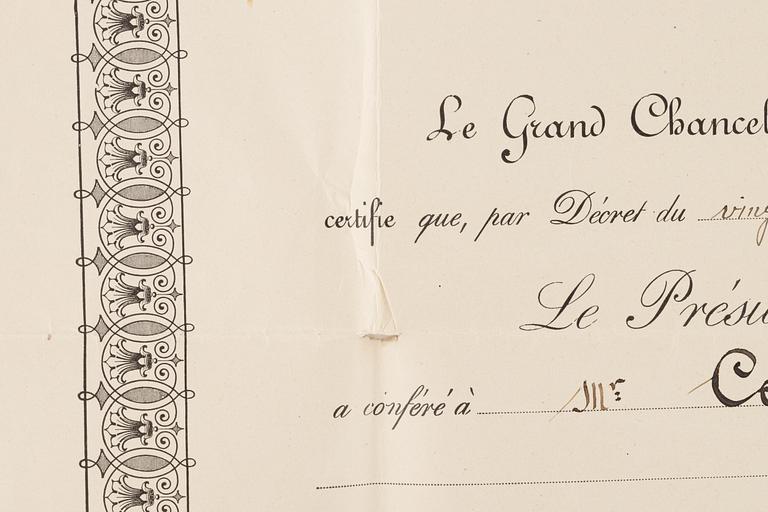 Le Grand Chancel
certifie que, par Décret du ving
Le Présid
a conféré à Mr Ce